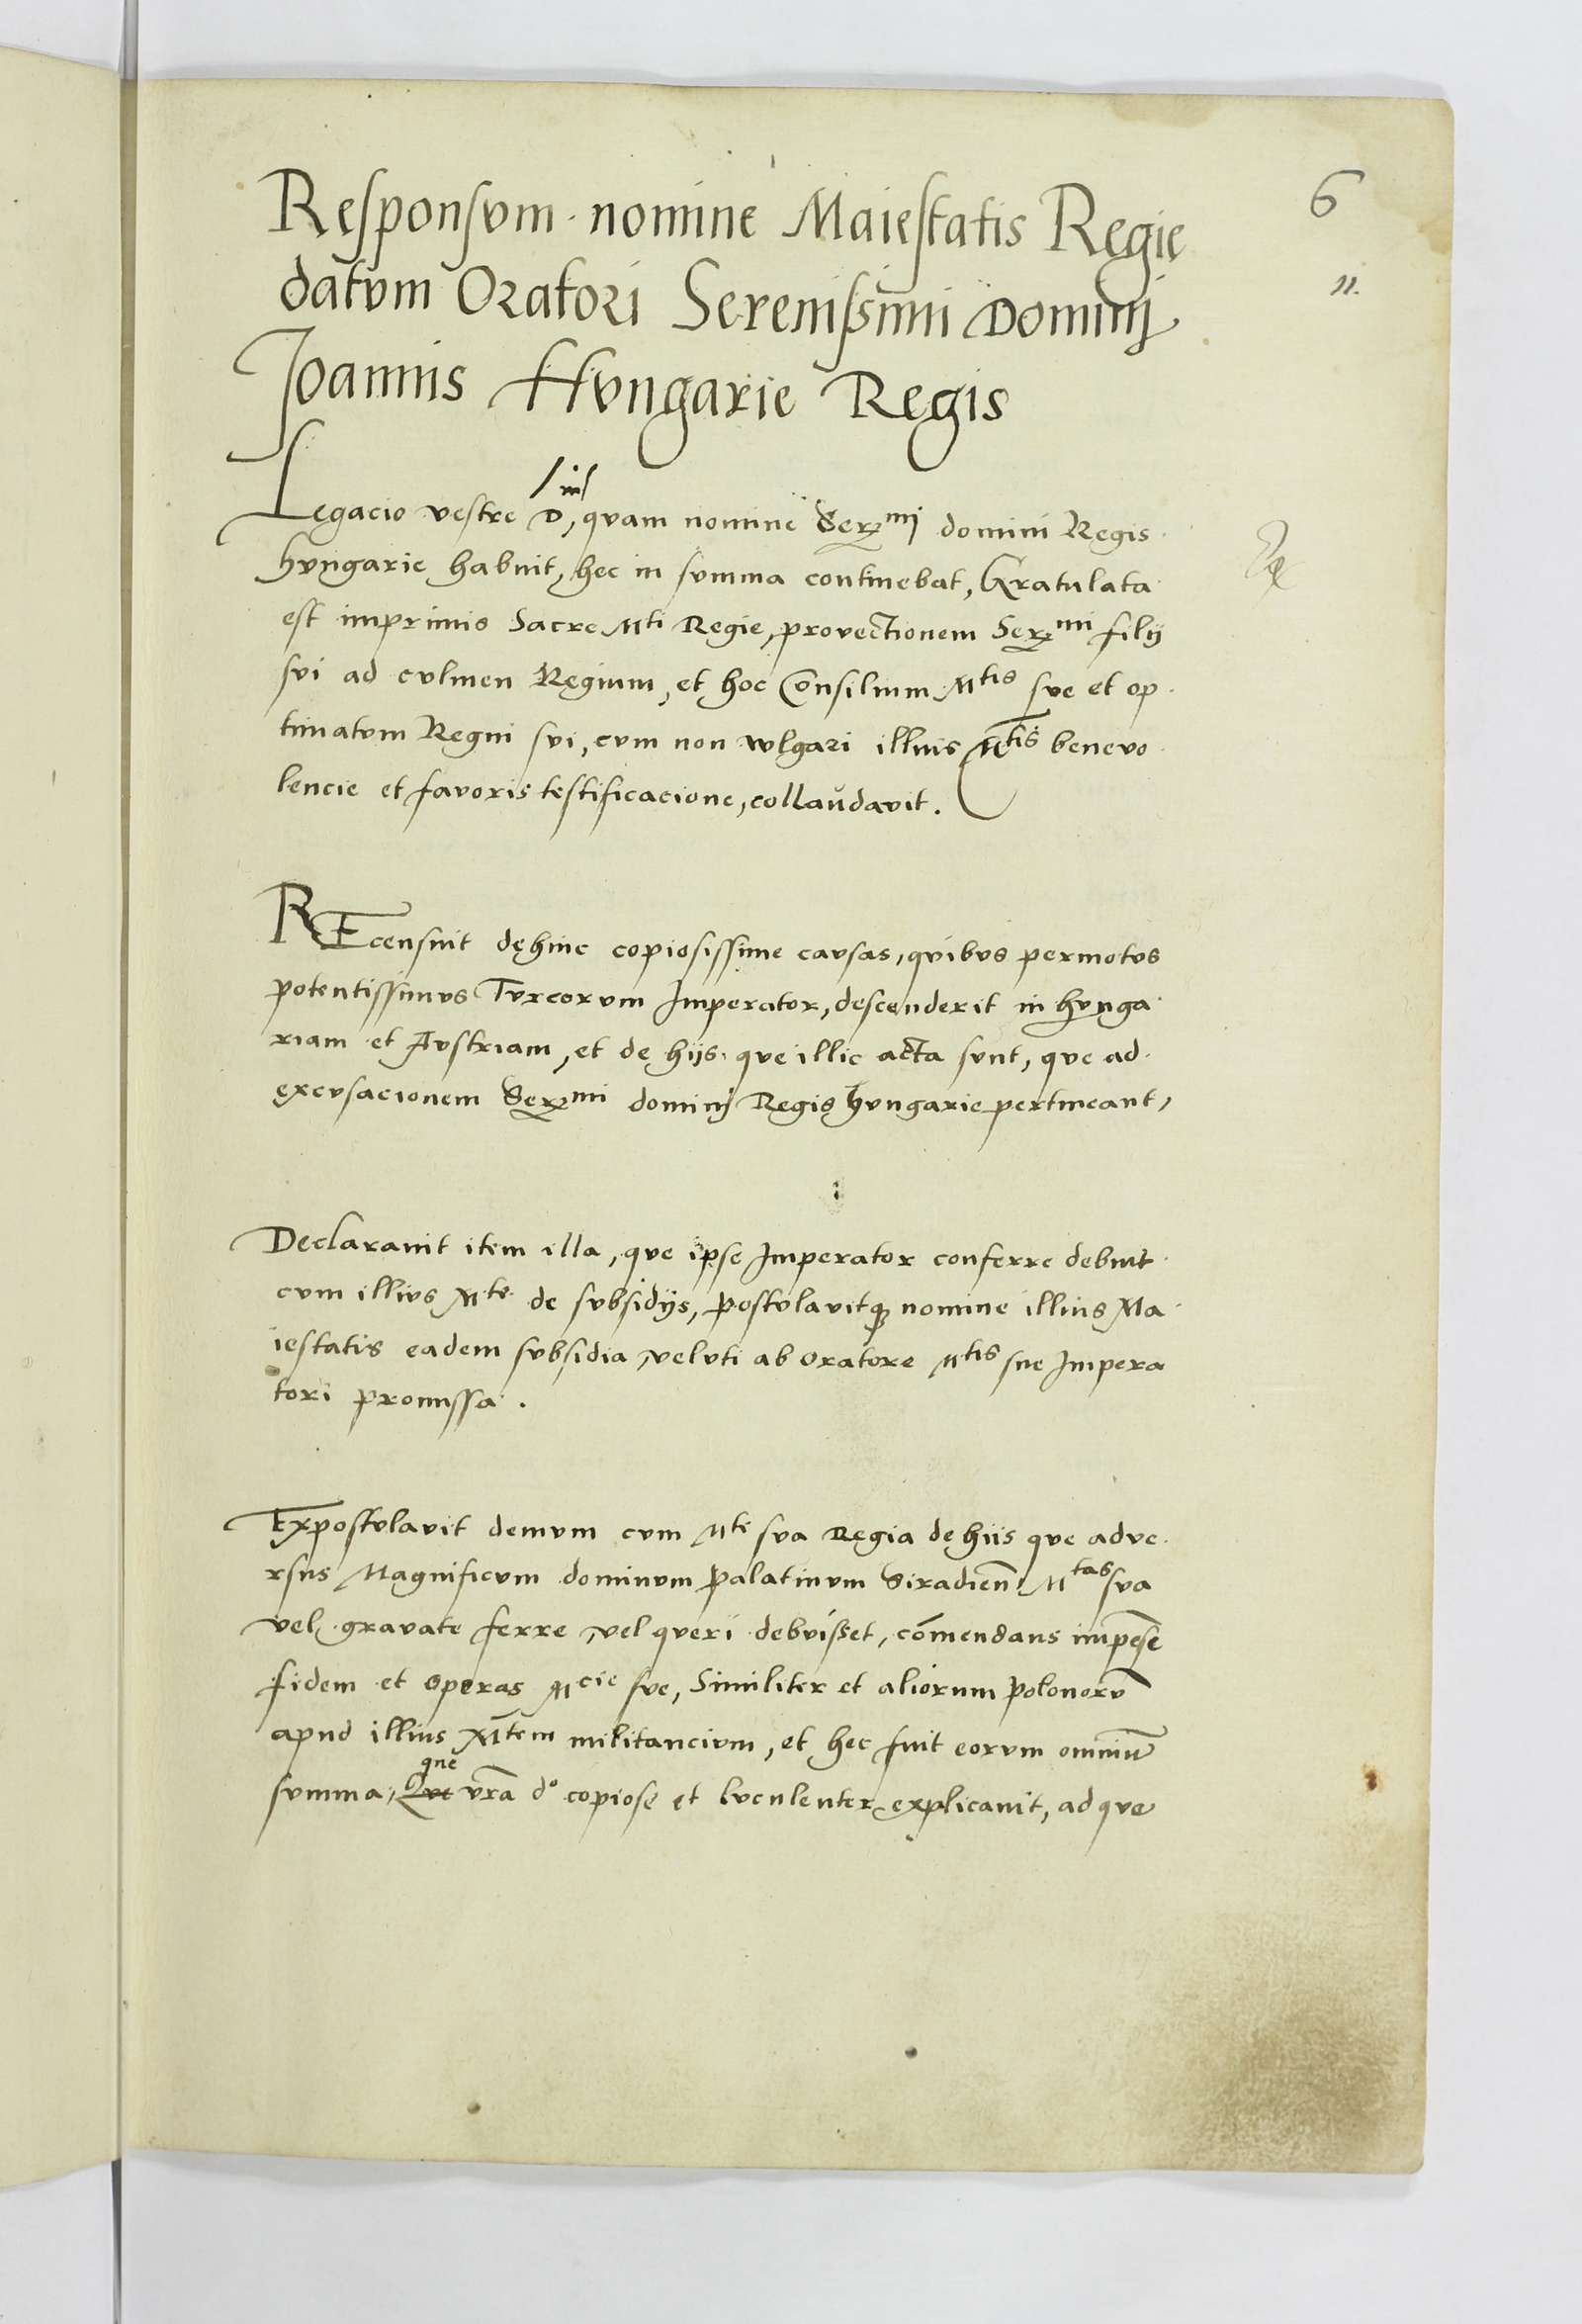 Responsvm nomine Maiestatis Regie
6
datvm Oratori Serenissimi Dominij
11.
Joannis Hvngarie Regis
Legacio vestre D, qvam nomine Sermj domini Regis
hvngarie habuit, hec in svmma continebat, Gratulata
est imprimis Sacre Mti Regie, provectionem Sermi filij
svi ad cvlmen Regium, et hoc Consilium Mtis sve et op
timatvm Regni svi, cvm non wlgari illius Mtis benevo
lencie et favoris testificacione, collavdavit.
REcensuit dehinc copiosissime cavsas, qvibvs permotvs
potentissimvs Tvrcorvm Imperator, descenderit in hvnga
riam et Avstriam, et de hijs qve illic acta svnt, qve ad
excvsacionem Sermi dominj Regis hvngarie pertineant,
Declaravit item illa, qve ipse Imperator conferre debuit
cvm illivs Mte de svbsidijs, postvlavitq nomine illius Ma
iestatis eadem svbsidia, velvti ab oratore Mtis sue Impera
tori promissa.
Expostvlavit demvm cvm Mte sva Regia de hiis qve adve
rsus Magnificvm dominvm palatinvm Siradien Mtas sva
vel gravate ferre, vel qveri debvisset, cōmendans impēse
fidem et operas Mcie sve, Similiter et aliorum polonorv̄
apud illius Mtem militancivm, et hec fuit eorvm omniū
que
svmma, Qve vrā do copiose et lvculenter explicavit, ad qve